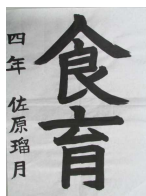 食育
四年 佐原瑠月